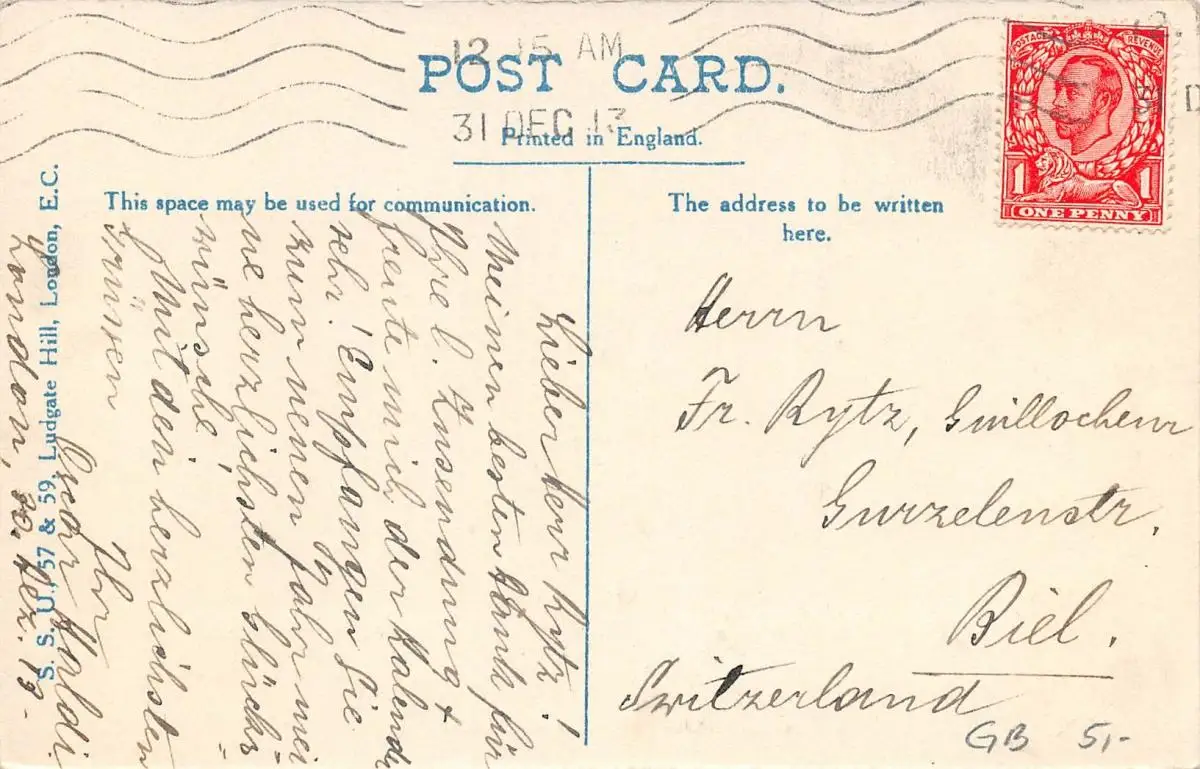 POST CARD.
Printed in England.
12 15 AM
31 DEC 13
POSTAGE REVENUE
1 1
ONE PENNY
This space may be used for communication.
The address to be written
here.
S. S. U., 57 & 59, Ludgate Hill, London, E.C.
Lieber Herr Rytz!
Meinen besten Dank für
Ihre l. Zusendung &
freute mich der Kalender
sehr! Empfangen Sie
zum neuen Jahr mei
ne herzlichsten Glücks=
wünsche!
Mit den herzlichsten
Grüssen
Ihr
Oscar Haldi
London, 30. Dez. 13.
Herrn
Fr. Rytz, Guillocheur
Gurzelenstr.
Biel.
Switzerland
GB 5,-